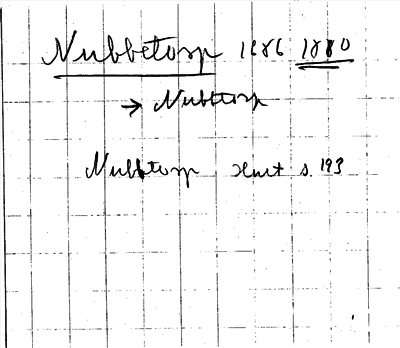 Nubbetorp 1686 1880
→ Nubbtorp
Nubbtorp s. 193